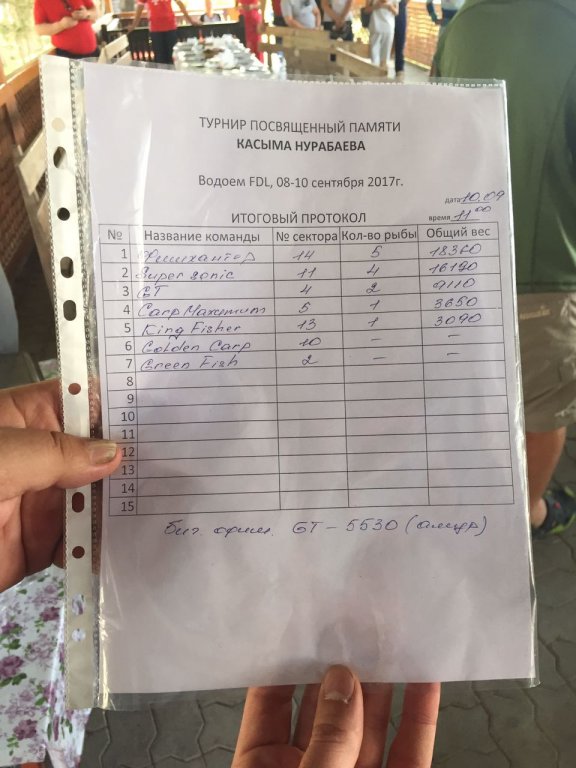 ТУРНИР ПОСВЯЩЕННЫЙ ПАМЯТИ
КАСЫМА НУРАБАЕВА
Водоем FDL, 08-10 сентября 2017г.
дата 10.09
ИТОГОВЫЙ ПРОТОКОЛ время 11 00
№ Название команды № сектора Кол-во рыбы Общий вес
1 Фишхантер 14 5 18360
2 Super sonic 11 4 16190
3 GT 4 2 9110
4 Carp Maximum 5 1 3650
5 King Fisher 13 1 3090
6 Golden Carp 10 – –
7 Green Fish 2 – –
8
9
10
11
12
13
14
15
биг. фиш. GT – 5530 (амур)